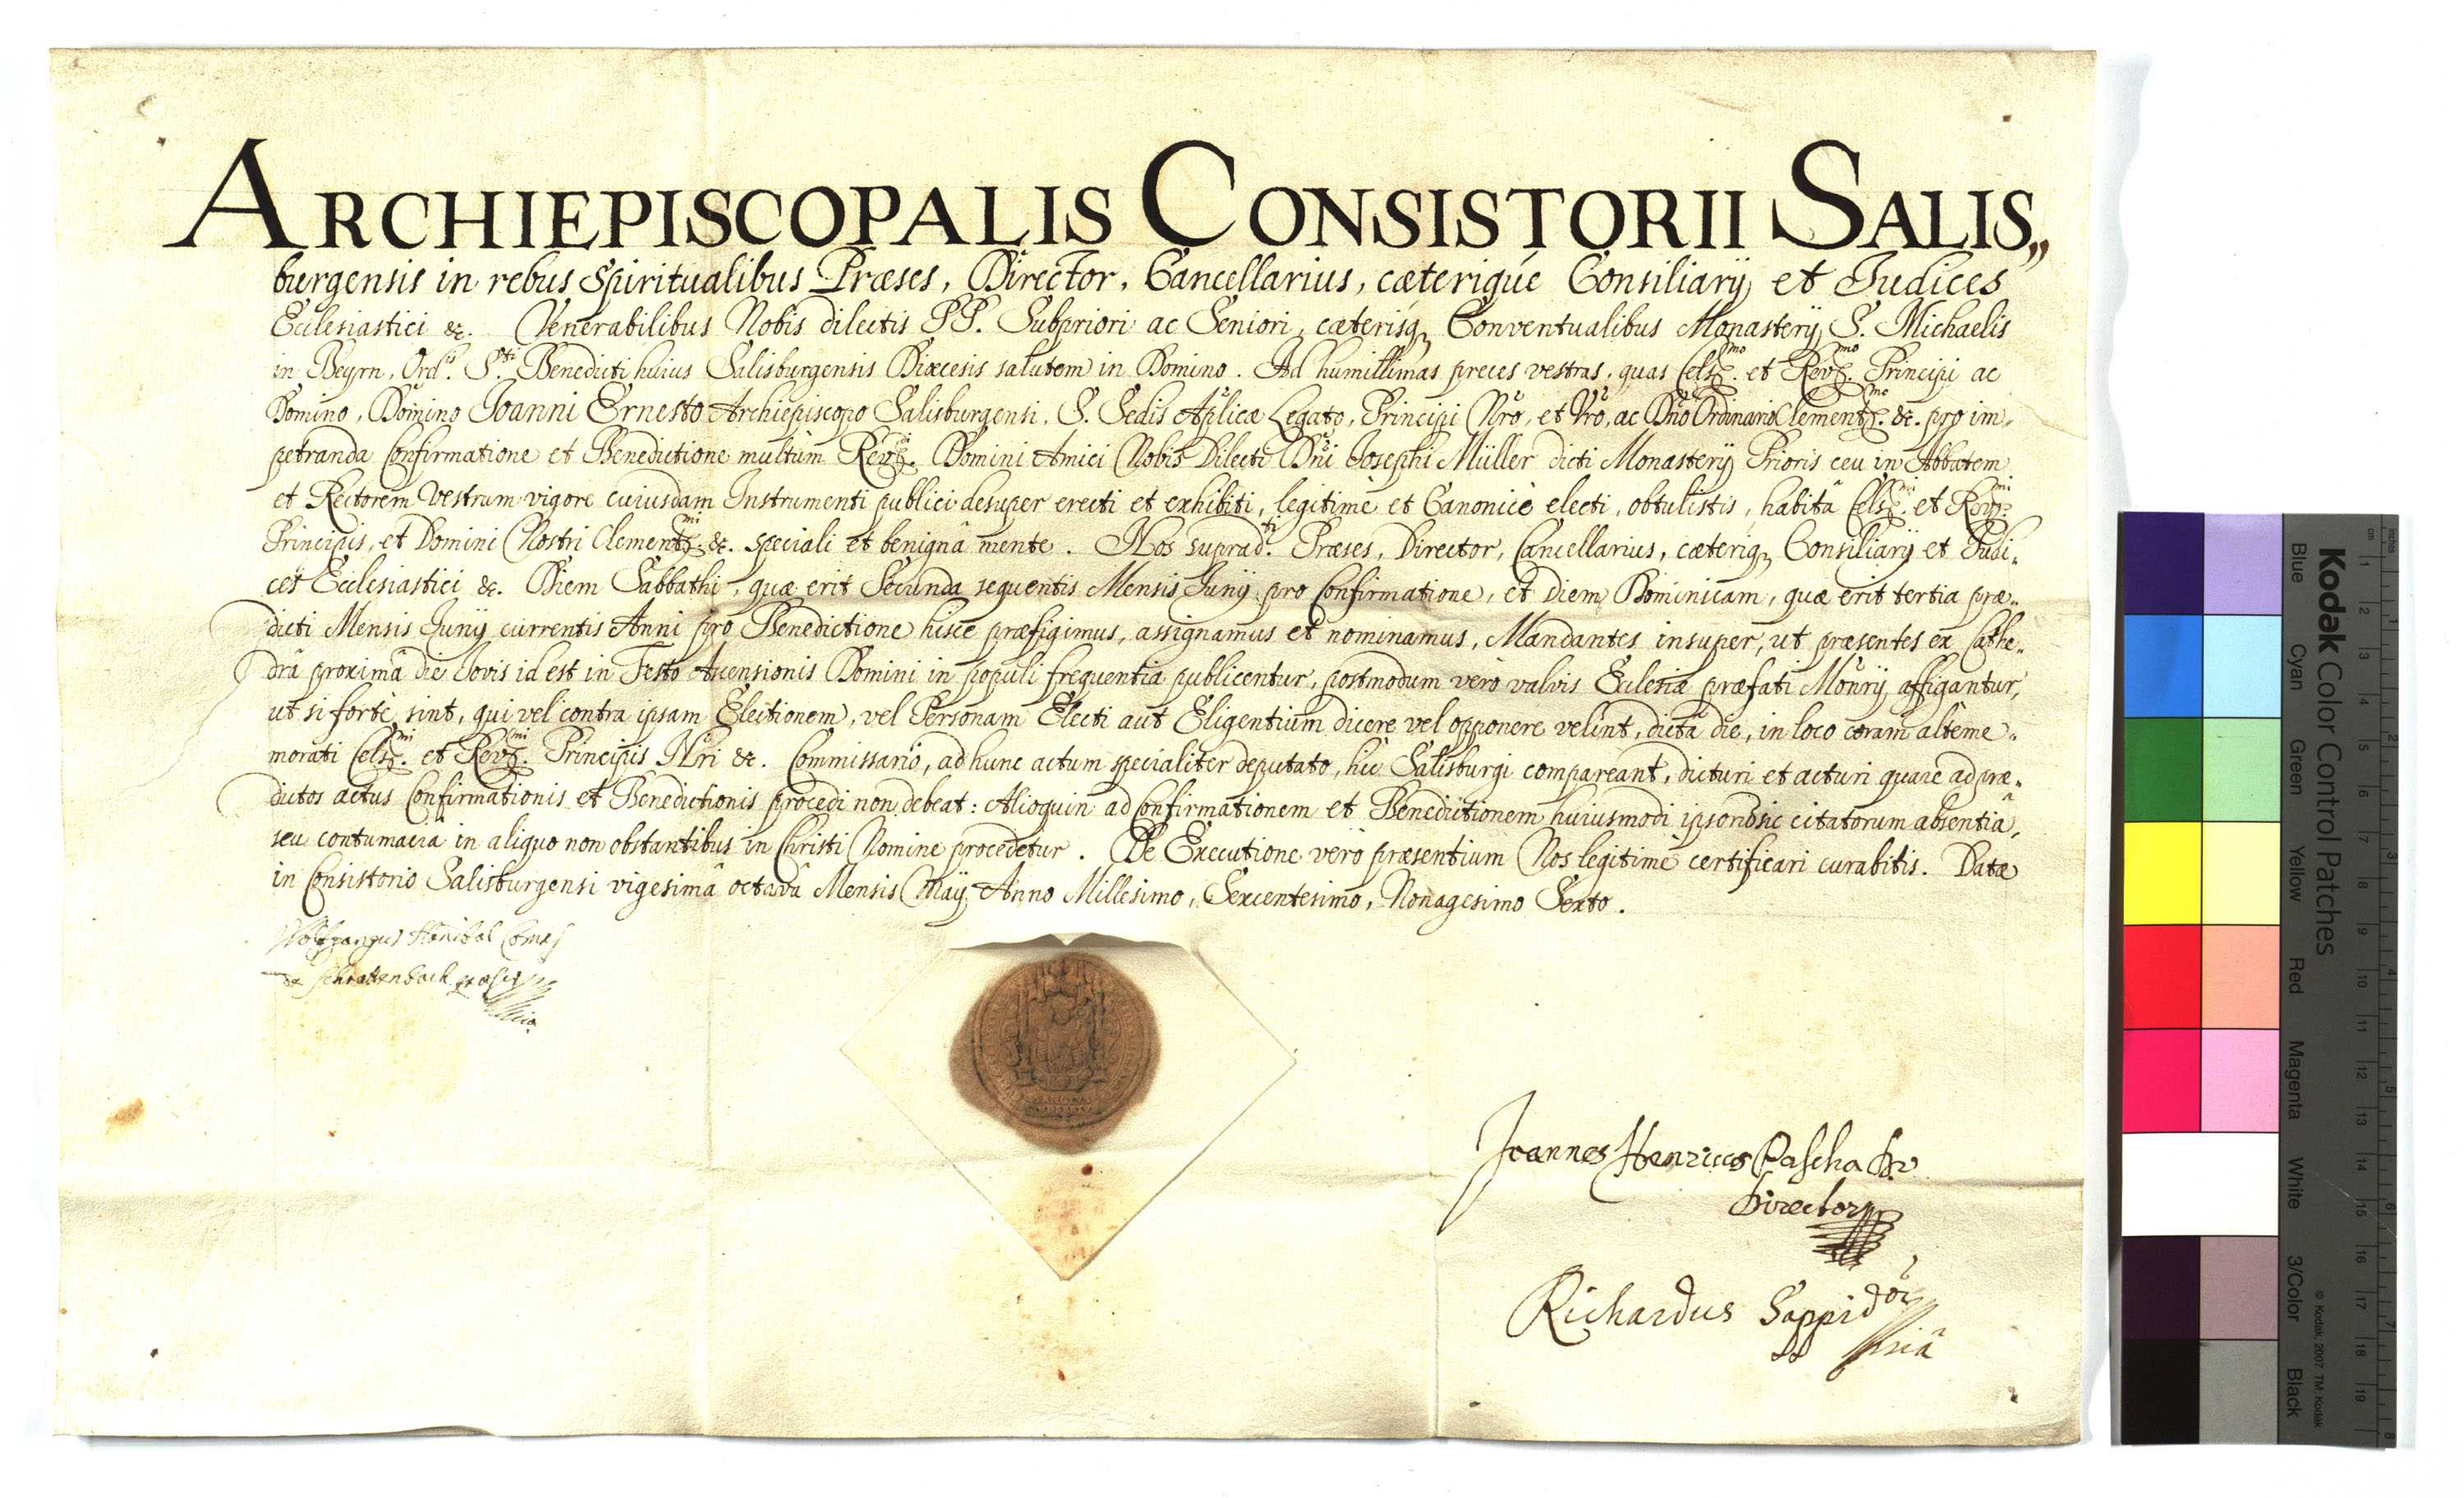 ARCHIEPISCOPALIS CONSISTORII SALIS„
burgensis in rebus Spiritualibus Præses, Director, Cancellarius, cæterique Consiliarij et Judices
Ecclesiastici &c. Venerabilibus Nobis dilectis PP. Subpriori ac Seniori, cæterisq, Conventualibus Monasterij S. Michaelis
in Beyrn, Ord.is S.ti Benedicti huius Salisburgensis Diœcesis salutem in Domino. Ad humillimas preces vestras, quas Cels.mo et Rev.mo Principi ac
Domino, Domino Joanni Ernesto Archiepiscopo Salisburgensi, S. Sedis Aplicæ Legato, Principi Nro, et Vro, ac Dno Ordinario Clement.mo &c. pro im„
petranda Confirmatione et Benedictione multùm Rev.di Domini Amici Nobis Dilecti Dni Josephi Müller dicti Monasterij Prioris ceu in Abbatem
et Rectorem Vestrum vigore cuiusdam Instrumenti publici desuper erecti et exhibiti, legitimè et Canonicè electi, obtulistis, habitâ Cels.mi et Rev.mi
Principis, et Domini Nostri Clement.mi &c. speciali et benignâ mente. Nos suprad.ti Præses, Director, Cancellarius, cæteriq, Consiliarij et Judi„
ces Ecclesiastici &c. Diem Sabbathi, quæ erit Secunda sequentis Mensis Junij pro Confirmatione, et diem Dominicam, quæ erit tertia præ„
dicti Mensis Junij currentis Anni pro Benedictione hisce præfigimus, assignamus et nominamus, Mandantes insuper, ut præsentes ex Cathe„
drâ proximâ die Jovis id est in Festo Ascensionis Domini in populi frequentia publicentur, postmodum verò valvis Ecclesiæ præfati Monrij affigantur,
ut si fortè sint, qui vel contra ipsam Electionem, vel Personam Electi aut Eligentium dicere vel opponere velint, dictâ die, in loco coram altème„
morati Cels.mi et Rev.mi Principis Nri &c. Commissario, ad hunc actum specialiter deputato, hic Salisburgi compareant, dicturi et acturi quare ad præ„
dictos actus Confirmationis et Benedictionis procedi non debeat: Alioquin ad Confirmationem et Benedictionem huiusmodi ipsorũ sic citatorum absentiâ,
seu contumaciâ in aliquo non obstantibus in Christi Nomine procedetur. De Executione verò præsentium Nos legitimè certificari curabitis. Datæ
in Consistorio Salisburgensi vigesimâ octavâ Mensis Maij Anno Millesimo, Sexcentesimo, Nonagesimo Sexto.
Wolfgangus Hanibal Comes
de Schrattenbach præses
Joannes Henricus Pascha Dr
Director
Richardus Sappid
Kodak Color Control Patches
Blue Cyan Green Yellow Red Magenta White 3/Color Black
© Kodak, 2007 TM: Kodak
inches 1 2 3 4 5 6 7 8
cm 1 2 3 4 5 6 7 8 9 10 11 12 13 14 15 16 17 18 19